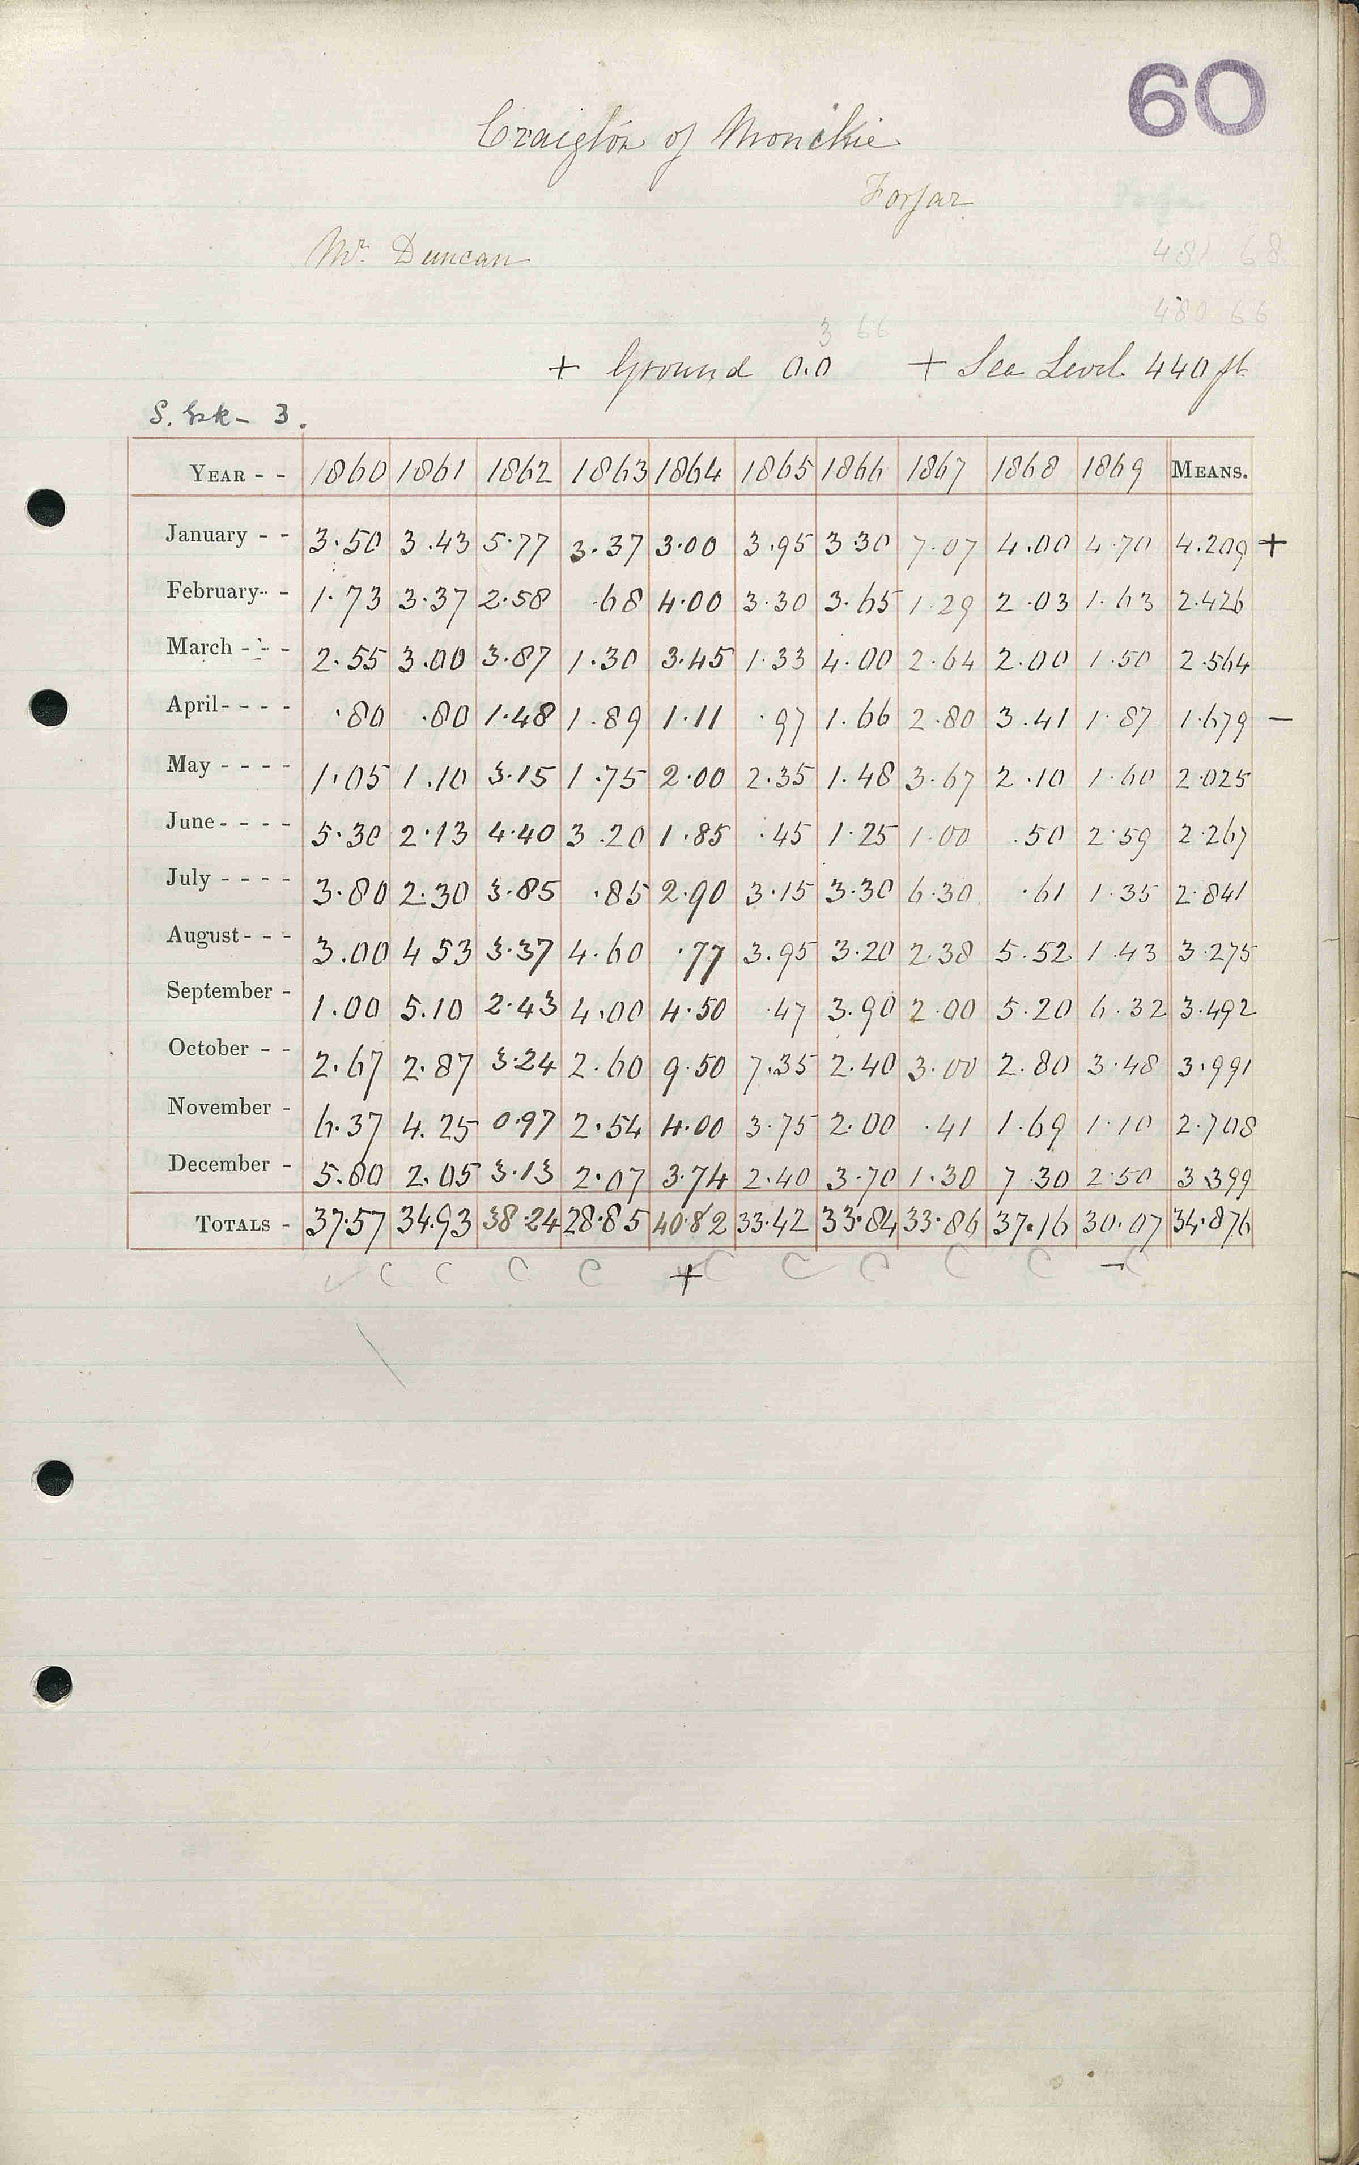 60
Craigton of Monikie
Forfar
481 68
Mr. Duncan
480 66
3 66
+ Ground 0.0 + Sea Level 440 ft
S. Esk - 3.
YEAR - - 1860 1861 1862 1863 1864 1865 1866 1867 1868 1869 MEANS.
January - - 3.50 3.43 5.77 3.37 3.00 3.95 3.30 7.07 4.00 4.70 4.209 +
February - - 1.73 3.37 2.58 .68 4.00 3.30 3.65 1.29 2.03 1.63 2.426
March - - - 2.55 3.00 3.87 1.30 3.45 1.33 4.00 2.64 2.00 1.50 2.564
April - - - - .80 .80 1.48 1.89 1.11 .97 1.66 2.80 3.41 1.87 1.679 -
May - - - - 1.05 1.10 3.15 1.75 2.00 2.35 1.48 3.67 2.10 1.60 2.025
June - - - - 5.30 2.13 4.40 3.20 1.85 .45 1.25 1.00 .50 2.59 2.267
July - - - - 3.80 2.30 3.85 .85 2.90 3.15 3.30 6.30 .61 1.35 2.841
August - - - 3.00 4 53 3.37 4.60 .77 3.95 3.20 2.38 5.52 1.43 3.275
September - 1.00 5.10 2.43 4.00 4.50 .47 3.90 2.00 5.20 6.32 3.492
October - - 2.67 2.87 3.24 2.60 9.50 7.35 2.40 3.00 2.80 3.48 3.991
November - 6.37 4.25 0.97 2.54 4.00 3.75 2.00 .41 1.69 1.10 2.708
December - 5.80 2.05 3.13 2.07 3.74 2.40 3.70 1.30 7 30 2.50 3.399
TOTALS - 37.57 34.93 38.24 28.85 40.82 33.42 33.84 33.86 37.16 30.07 34.876
C C C C + C C C C C - C